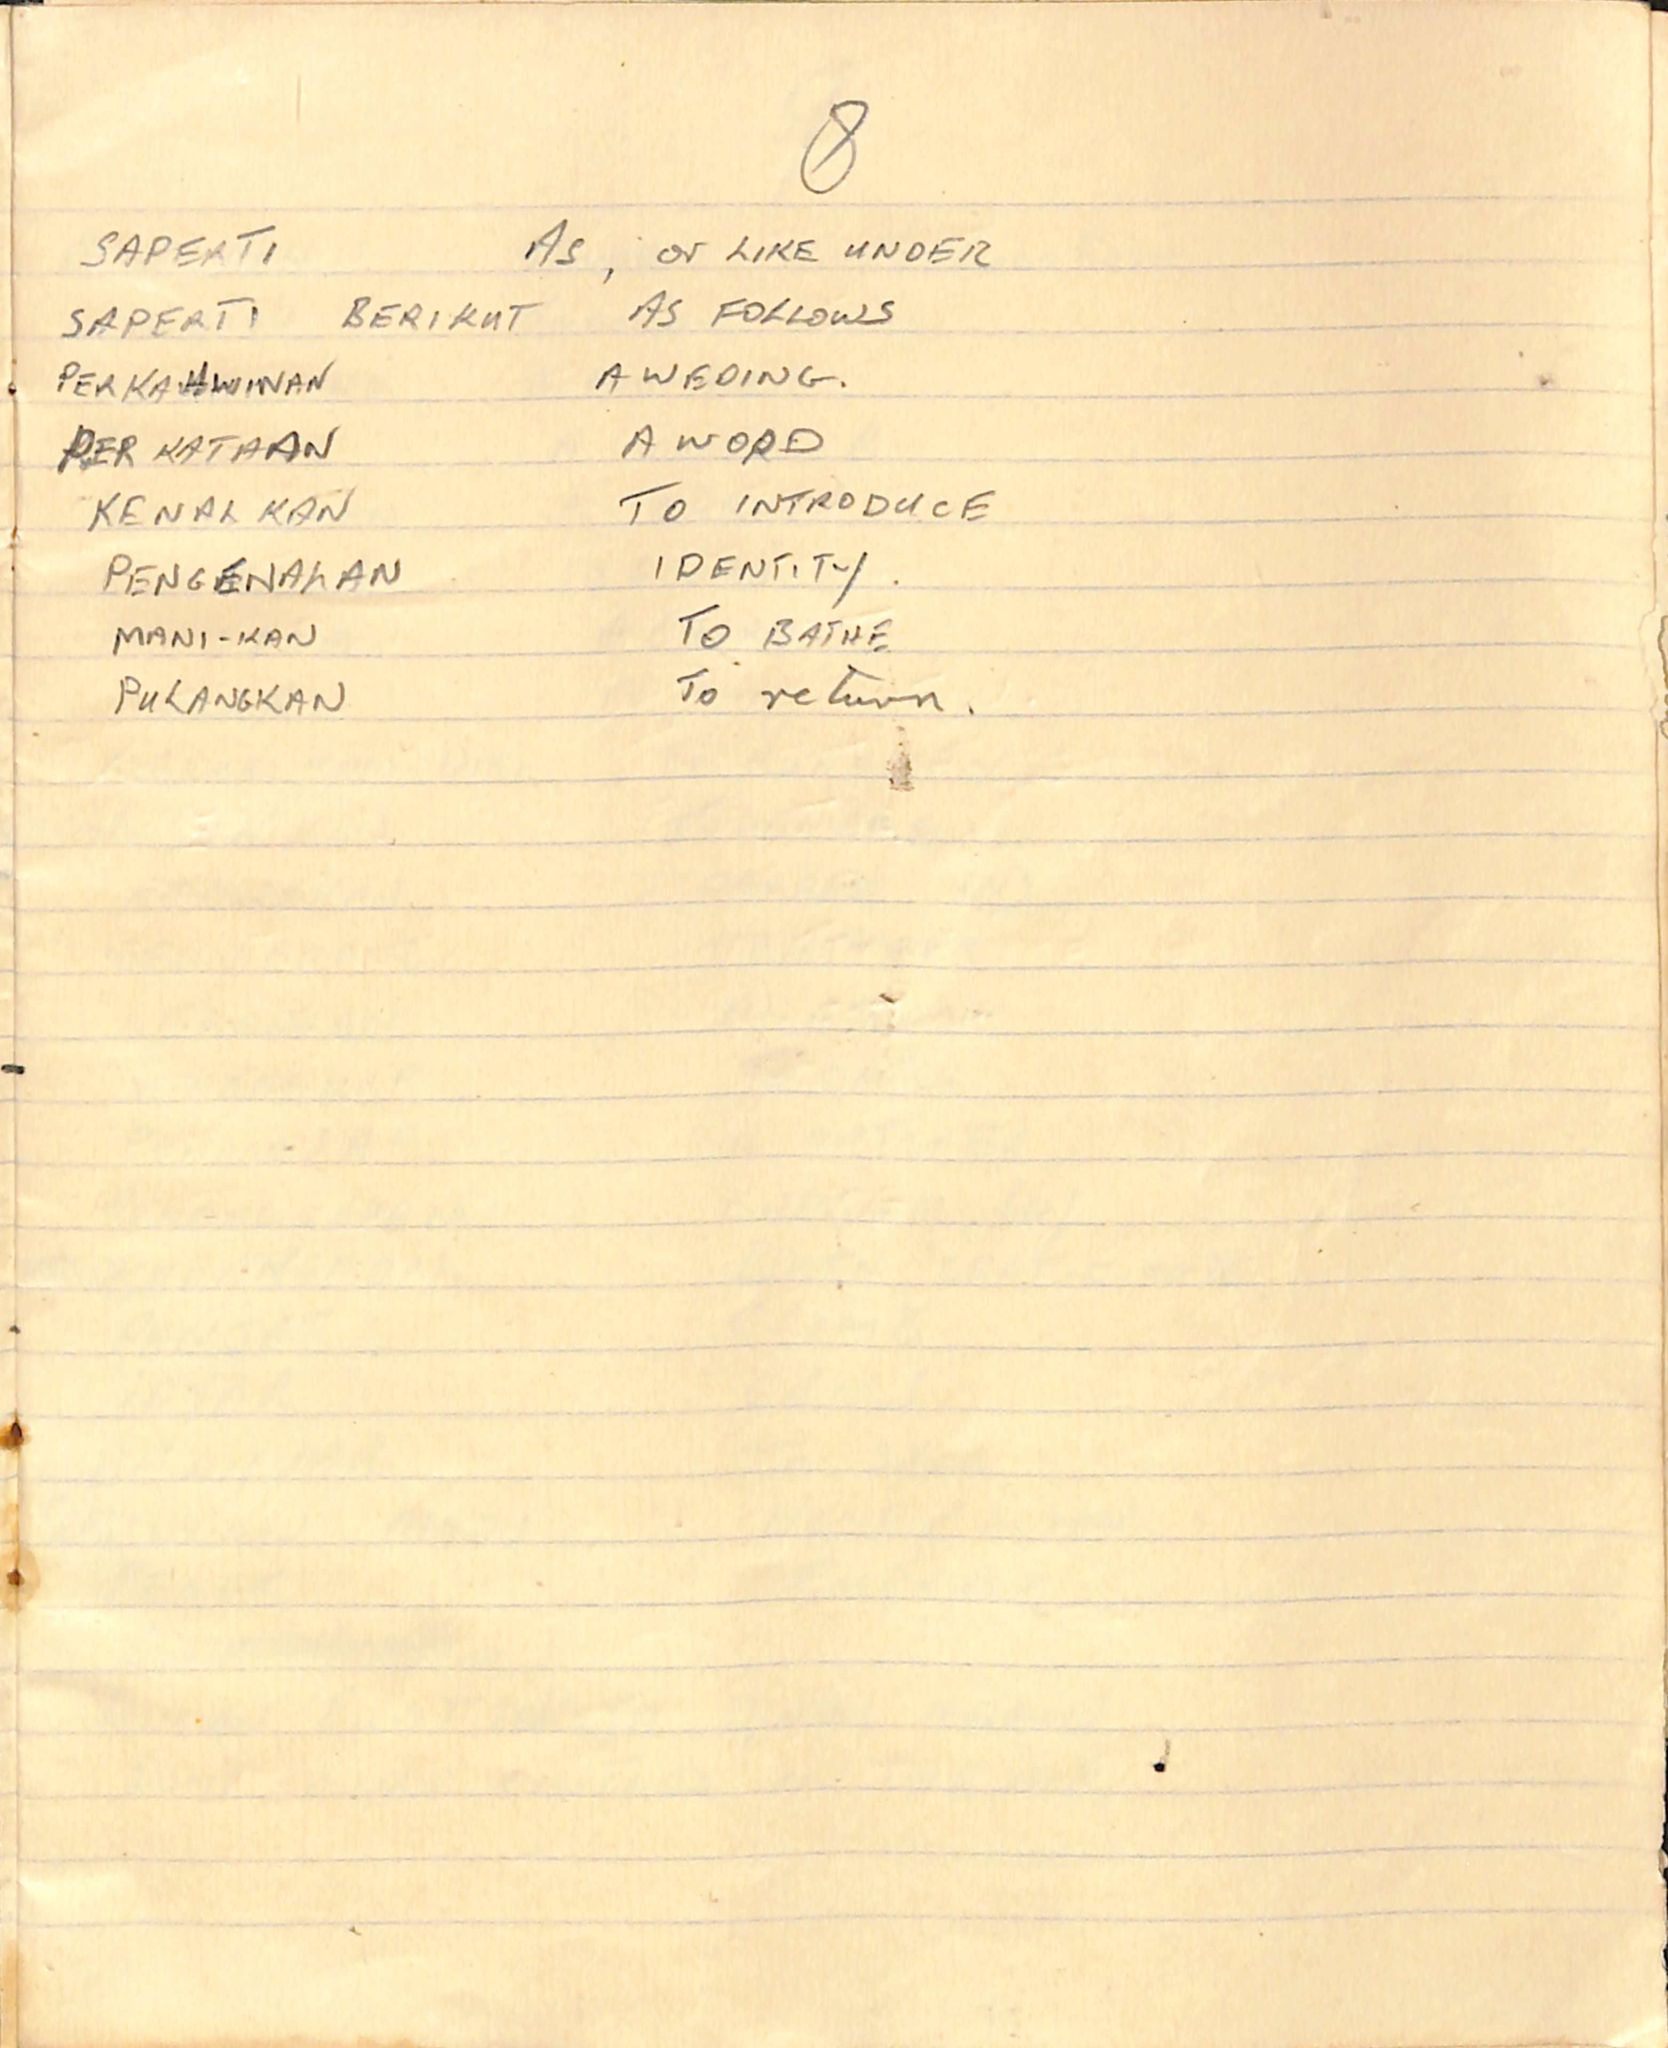 8
SAPERTI AS, or LIKE UNDER
SAPERTI BERIKUT AS FOLLOWS
PERKAHWINAN A WEDING.
PERKATAAN A WORD
KENALKAN TO INTRODUCE
PENGENALAN IDENTITY.
MANI-KAN TO BATHE
PULANGKAN To return.